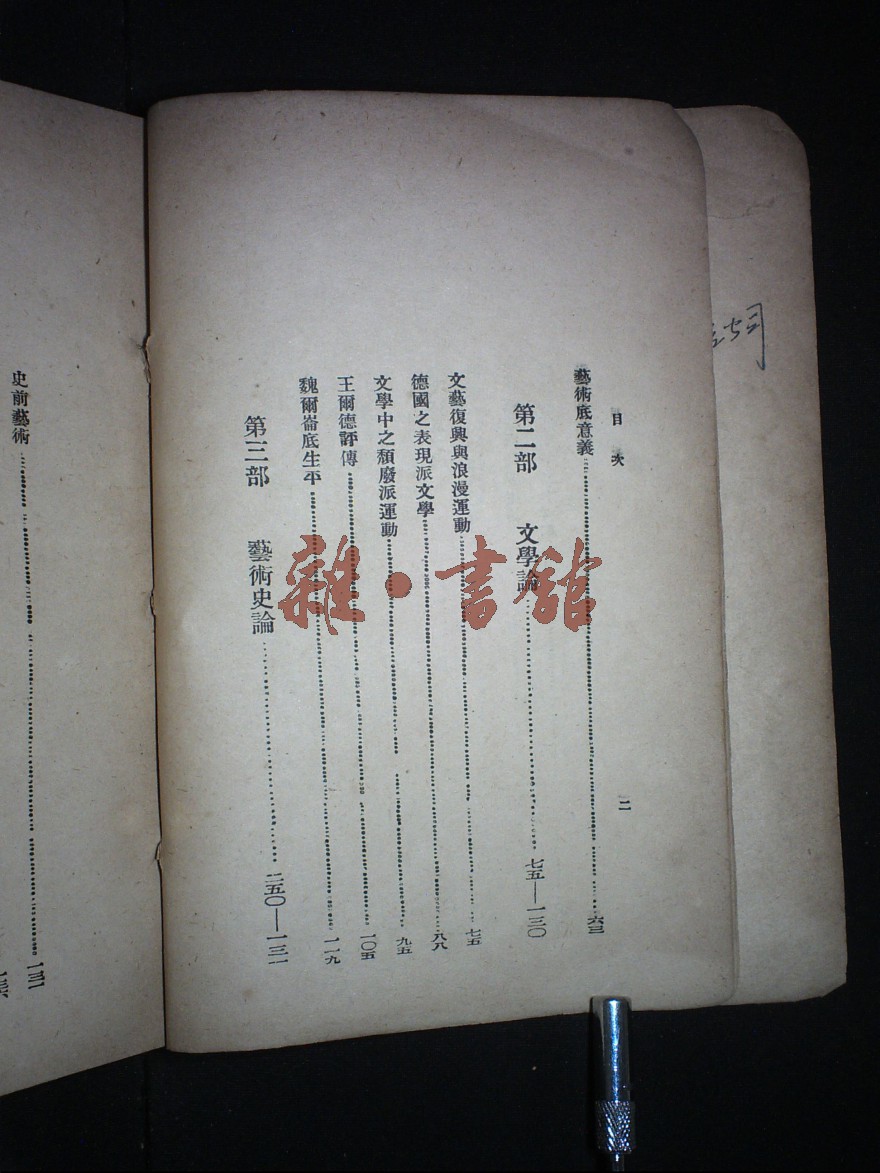 目次 二
藝術底意義……六三
第二部 文學論……七五—一三〇
文藝復興與浪漫運動……七五
德國之表現派文學……八八
文學中之頹廢派運動……九五
王爾德評傳……一〇五
魏爾崙底生平……一一九
第三部 藝術史論……二五〇—一三一
史前藝術……
雜·書館